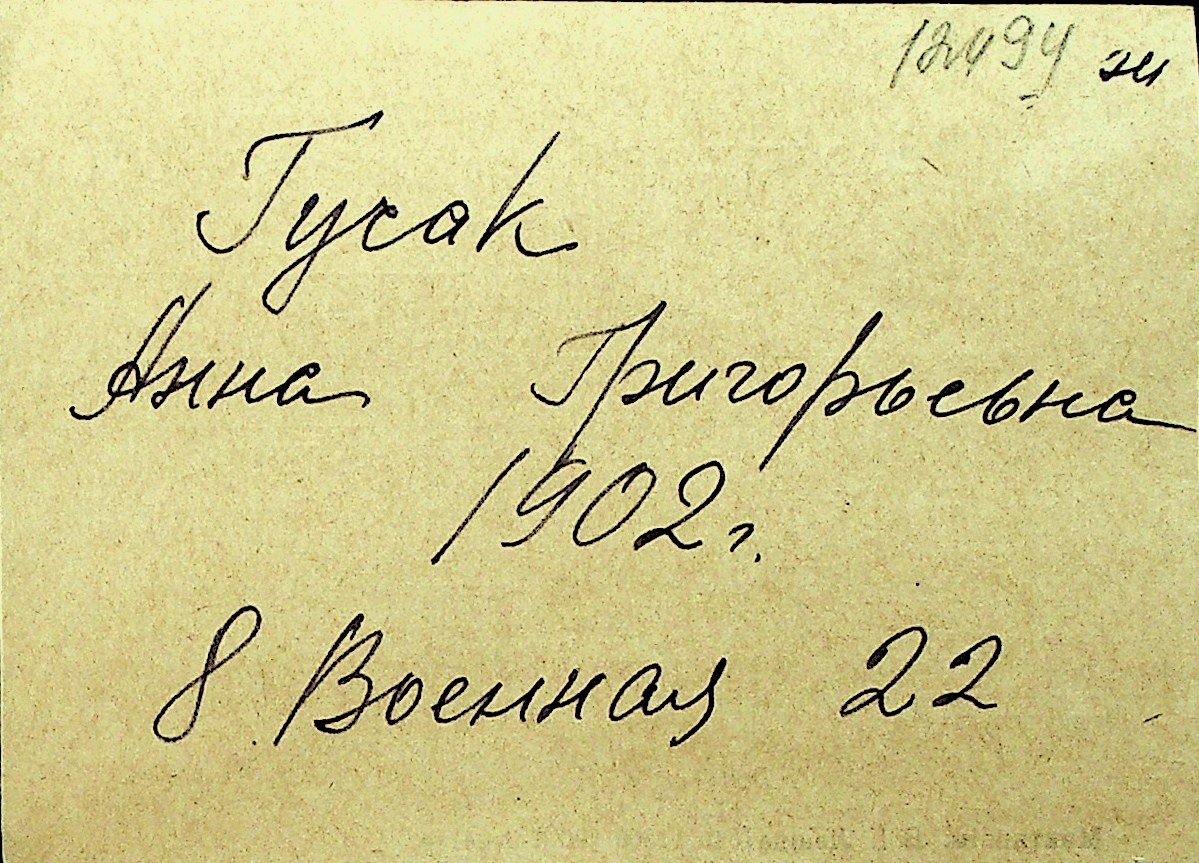 12494 ж
Гусак
Анна Григорьевна
1902 г.
8 Военная 22